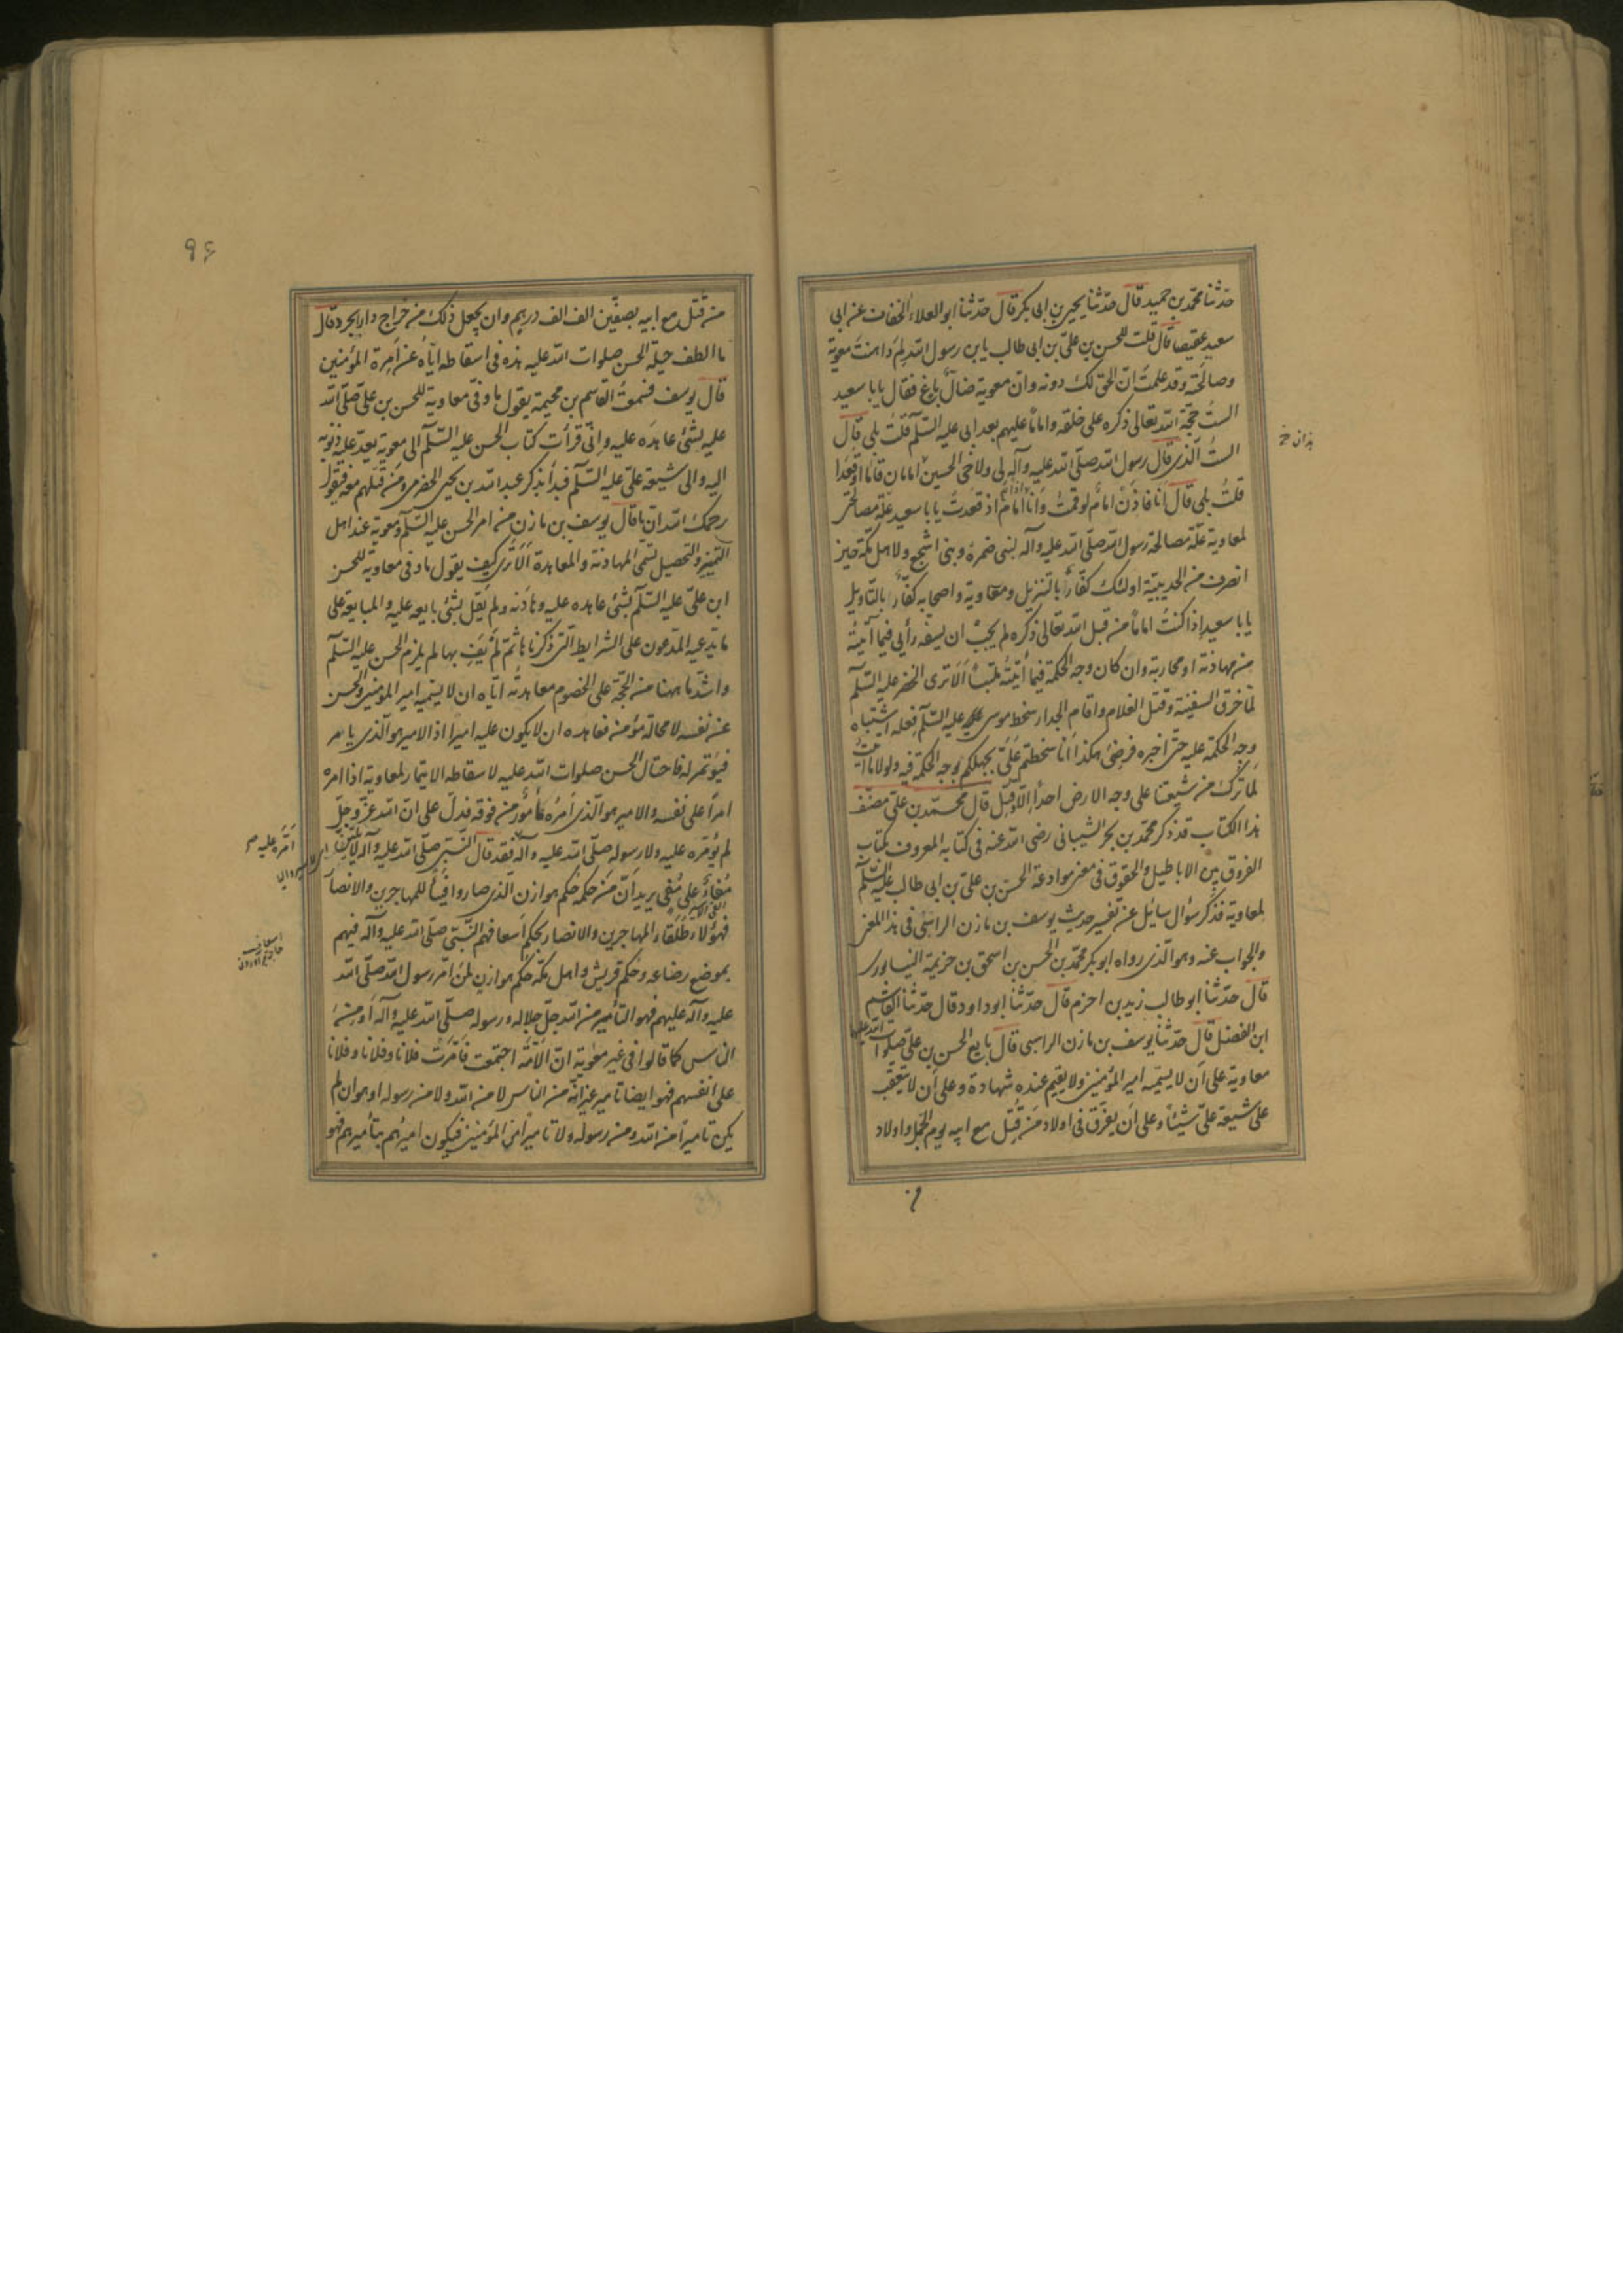 حدّثنا محمّد بن حميد قال حدّثنا يحيى بن ابى بكر قال حدّثنا ابو العلاء الخفاف عن ابى
سعيد عقيصا قال قلت للحسن بن علىّ بن ابى طالب يابن رسول الله لم داهنت معوية
وصالحته وقد علمت انّ الحقّ لك دونه وان معوية ضالّ باغ فقال يا با سعيد
الستُ حجّة الله تعالى ذكره على خلقه واماما عليهم بعد ابى عليه السّلم قلتُ بلى قال
الستُ الّذى قال رسول الله صلّى الله عليه وآله لى ولاخى الحسين امامان قاما او قعدا
قلتُ بلى قال انا فاذن امام لو قمتُ وانا امام اذ قعدتُ يا با سعيد علّة مصالحتى
لمعاوية علّة مصالحة رسول الله صلّى الله عليه وآله لبنى ضمرة وبنى اشجع ولاهل مكّة حين
انصرف من الحديبيّة اولئك كفّار بالتنزيل ومعاوية واصحابه كفّار بالتّاويل
يا با سعيد اذا كنتُ اماماً من قبل الله تعالى ذكره لم يجب ان يسفّه رأيى فيما اتيته
من مهادنة او محاربة وان كان وجه الحكمة فيما اتيتُه ملتبساً الا ترى الخضر عليه السّلم
لمّا خرق السفينة وقتل الغلام واقام الجدار سخط موسى عليه السّلم فعله اشتباه
وجه الحكمة عليه حتّى اخبره فرضى هكذا انا سخطتم علىّ بجهلكم بوجه الحكمة فيه ولولا ما اتيتُ
لما ترك من شيعتنا على وجه الارض احداً الّا قتل قال محمّد بن علىّ مصنّف
هذا الكتاب قد ذكر محمّد بن بحر الشيبانى رضى الله عنه فى كتابه المعروف بكتاب
الفروق بين الاباطيل والحقوق فى معنى موادعة الحسن بن علىّ بن ابى طالب عليه السّلم
لمعاوية فذكر سؤال سائل عن تفسير حديث يوسف بن مازن الراسبى فى هذا المعنى
والجواب عنه وهو الّذى رواه ابو بكر محمّد بن الحسن بن اسحق بن خزيمة النيسابورى
قال حدّثنا ابو طالب زيد بن احزم قال حدّثنا ابو داود قال حدّثنا القاسم
ابن الفضل قال حدّثنا يوسف بن مازن الراسبى قال بايع الحسن بن على صلوات الله عليهما
معاوية على ان لا يسمّيه امير المؤمنين ولا يقيم عنده شهادة وعلى ان لا يتعقب
على شيعة علىّ شيئاً وعلى ان يفرّق فى اولاد من قُتل مع ابيه يوم الجمل واولاد
٩٦
من قُتل مع ابيه بصفّين الف الف درهم وان يجعل ذلك من خراج دارابجرد قال
ما الطف حيلة الحسن صلوات الله عليه هذه فى اسقاطه ايّاه عن امرة المؤمنين
قال يوسف فسمعتُ القاسم بن محيمة يقول ما وفى معاوية للحسن بن علىّ صلّى الله
عليه بشئ عاهده عليه وانّى قرأت كتاب الحسن عليه السّلم الى معوية يعدّ عليه ذنوبه
اليه والى شيعة علىّ عليه السّلم فبدأ بذكر عبد الله بن يحيى الحضرمى ومن قتلهم معه فيقول
رحمك الله انّ ما قال يوسف بن مازن من امر الحسن عليه السّلم ومعوية عند اهل
التمييز والتحصيل تسمّى المهادنة والمعاهدة الا ترى كيف يقول ما وفى معاوية للحسن
ابن علىّ عليه السّلم بشئ عاهده عليه وهادنه ولم يقل بشئ بايعه عليه والمبايعة على
ما يدّعيه المدّعون على الشرايط الّتى ذكرناها ثمّ لم يف بها لم يلزم الحسن عليه السّلم
واشدّ ما ههنا من الحجّة على الخصوم معاهدته ايّاه ان لا يسمّيه امير المؤمنين والحسن
عند نفسه لا محالة مؤمن فعاهده ان لا يكون عليه اميراً اذ الامير هو الّذى يأمر
فيؤتمر له فاحتال الحسن صلوات الله عليه لاسقاط الايتمار لمعاوية اذا امره
امراً على نفسه والامير هو الّذى امره مأمور من فوقه فدلّ على انّ الله عزّ وجلّ
لم يؤمّره عليه ولا رسوله صلّى الله عليه وآله فقد قال النبىّ صلّى الله عليه وآله لا يلينّ
مُفاءٌ على مُفئ يريد انّ من حكمه حكم هوازن الّذى صاروا فيئاً للمهاجرين والانصار
فهؤلاء طلقاء المهاجرين والانصار بحكم اسعافهم النّبىّ صلّى الله عليه وآله فيهم
بموضع رضاعه وحكم قريش واهل مكّة حكم هوازن لمن امّر رسول الله صلّى الله
عليه وآله عليهم فهو التأمير من الله جلّ جلاله ورسوله صلّى الله عليه وآله او من
الناس كما قالوا فى غير معوية انّ الامّة اجتمعت فامّرت فلانا وفلانا وفلانا
على انفسهم فهو ايضا تامير غير انّه من الناس لا من الله ولا من رسوله او هو ان لم
يكن تاميراً من الله ومن رسوله ولا تاميراً من المؤمنين فيكون اميرهم بتأميرهم فهو